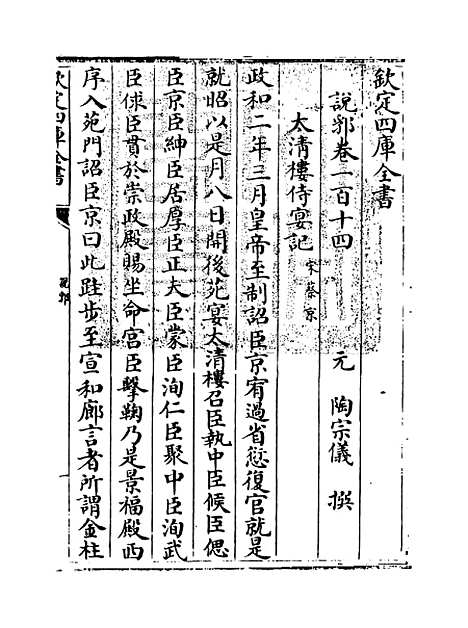 欽定四庫全書
說郛卷一百十四
元 陶宗儀 撰
太清樓侍宴記 宋蔡京
政和二年三月皇帝至制詔臣京宥過省愆復官就是
就昭以是月八日開後苑宴太清樓召臣執中臣俁臣偲
臣京臣紳臣居厚臣正夫臣蒙臣洵仁臣聚中臣洵武
臣俅臣貫於崇政殿賜坐命宮臣擊鞠乃是景福殿西
序入苑門詔臣京曰此跬步至宣和廊言者所謂金柱
欽定四庫全書
說郛
一